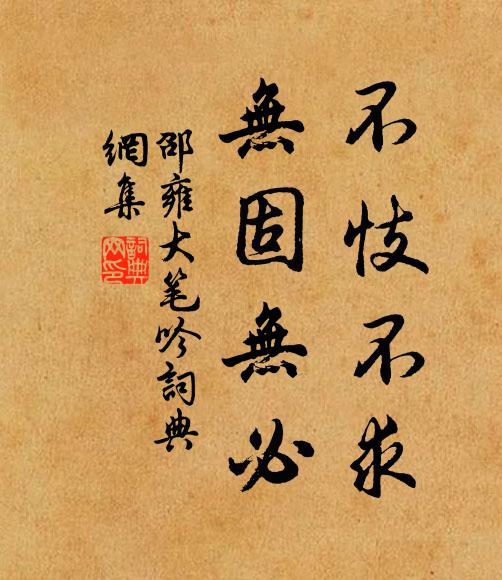 不忮不求
無固無必
邵雍大笔吟詞典
網集
詞典網印